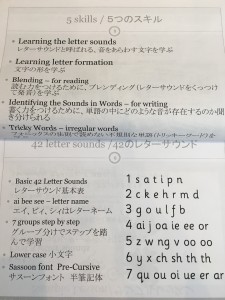 5 skills / 5つのスキル
• Learning the letter sounds
レターサウンドと呼ばれる、音をあらわす文字を学ぶ
• Learning letter formation
文字の形を学ぶ
• Blending – for reading
読む力をつけるために、ブレンディング(レターサウンドをくっつけ
て発音)を学ぶ
• Identifying the Sounds in Words – for writing
書く力をつけるために、単語の中にどのような音が存在するのか聞
き分けられる
• Tricky Words – irregular words
42 letter sounds /42のレターサウンド
• Basic 42 Letter Sounds
レターサウンド基本表
• ai bee see – letter name
エイ、ビィ、シィはレターネーム
• 7 groups step by step
グループ分けでステップを踏
んで学習
• Lower case 小文字
• Sassoon font Pre-Cursive
サスーンフォント 半筆記体
1 s a t i p n
2 c k e h r m d
3 g o u l f b
4 ai j oa ie ee or
5 z w ng v oo oo
6 y x ch sh th th
7 qu ou oi ue er ar